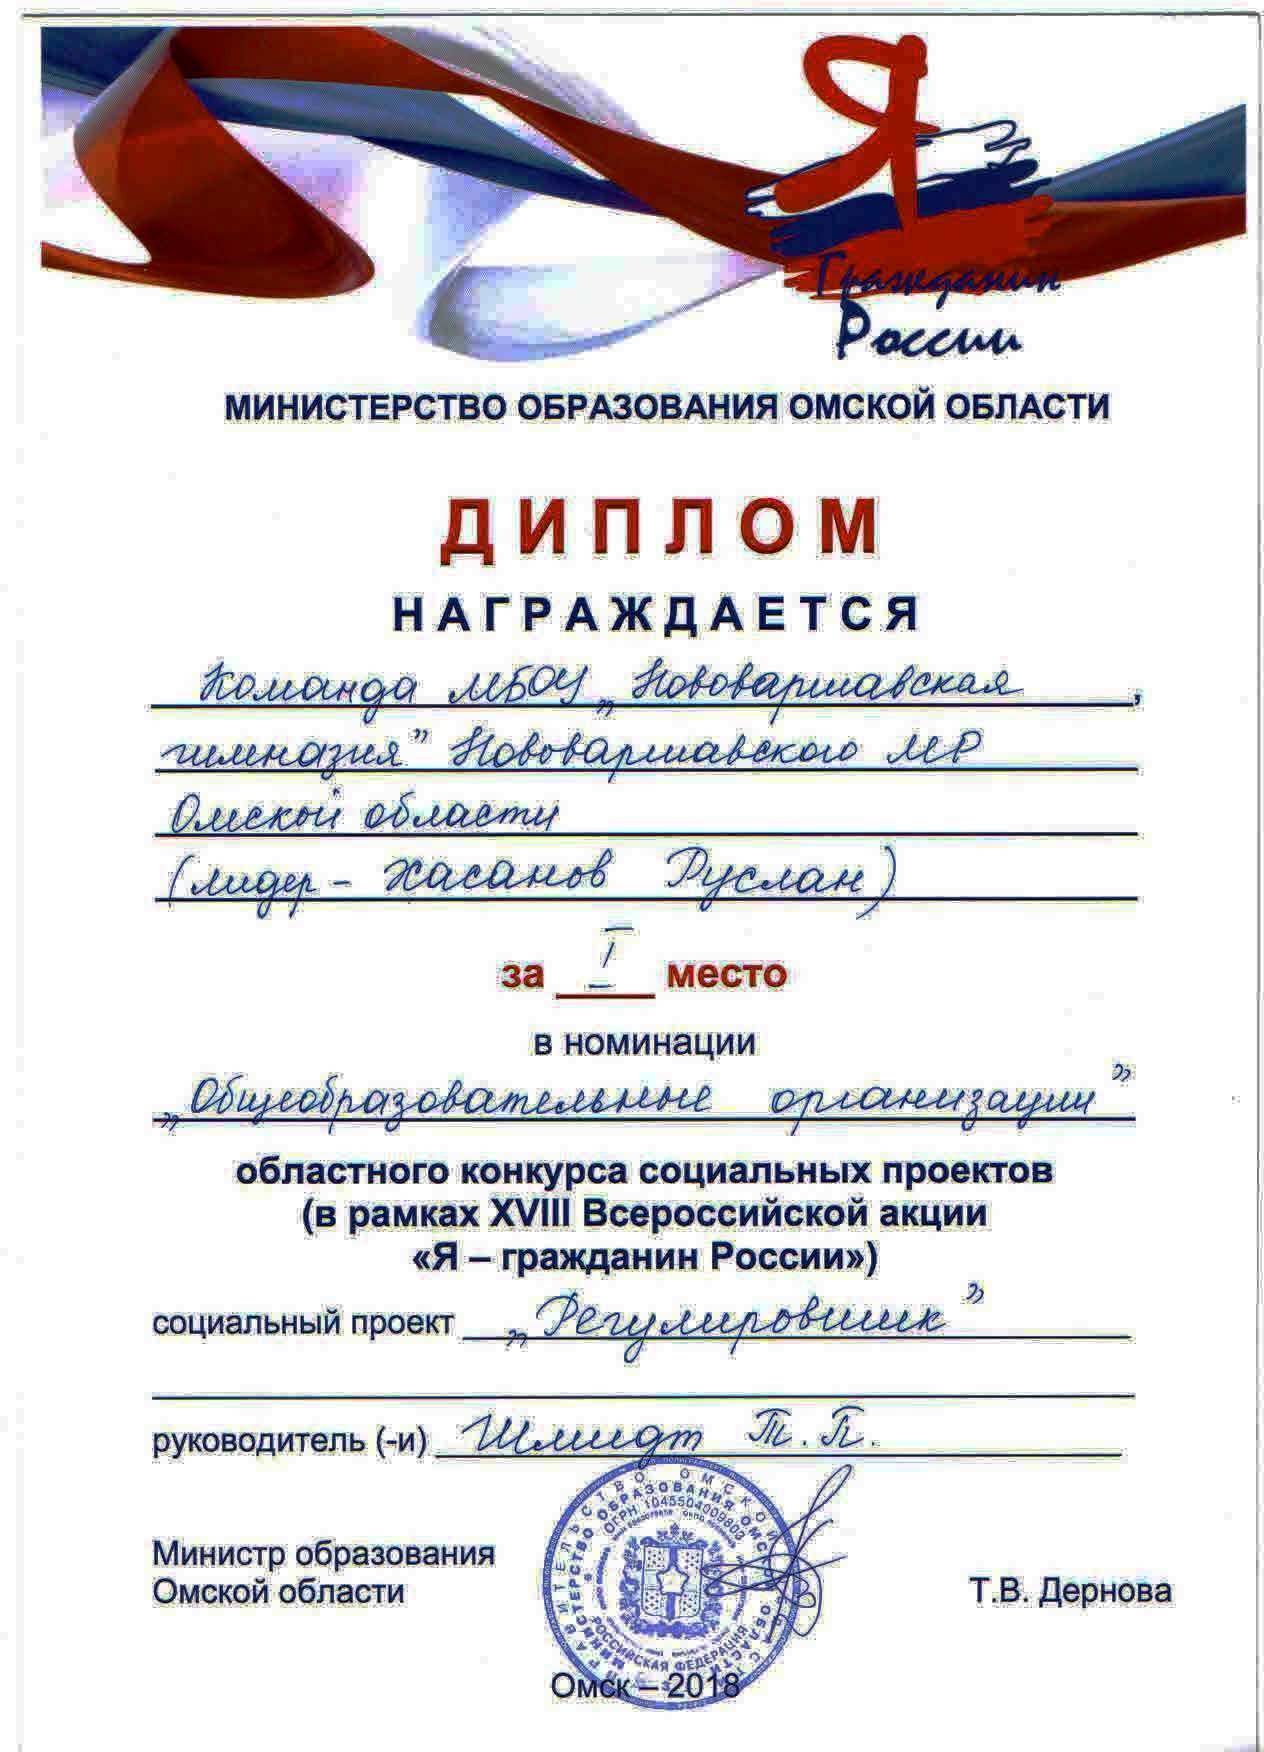 Я
Гражданин
России
МИНИСТЕРСТВО ОБРАЗОВАНИЯ ОМСКОЙ ОБЛАСТИ
ДИПЛОМ
НАГРАЖДАЕТСЯ
Команда МБОУ „Нововаршавская,
гимназия" Нововаршавского МР
Омской области
(лидер – Хасанов Руслан)
за I место
в номинации
„Общеобразовательные организации"
областного конкурса социальных проектов
(в рамках XVIII Всероссийской акции
«Я – гражданин России»)
социальный проект „Регулировщик"
руководитель (-и) Шмидт Т. П.
ПРАВИТЕЛЬСТВО ОМСКОЙ ОБЛАСТИ
МИНИСТЕРСТВО ОБРАЗОВАНИЯ ОМСКОЙ ОБЛАСТИ
ОГРН 1045504009803
РОССИЙСКАЯ ФЕДЕРАЦИЯ
Министр образования
Омской области Т.В. Дернова
Омск – 2018